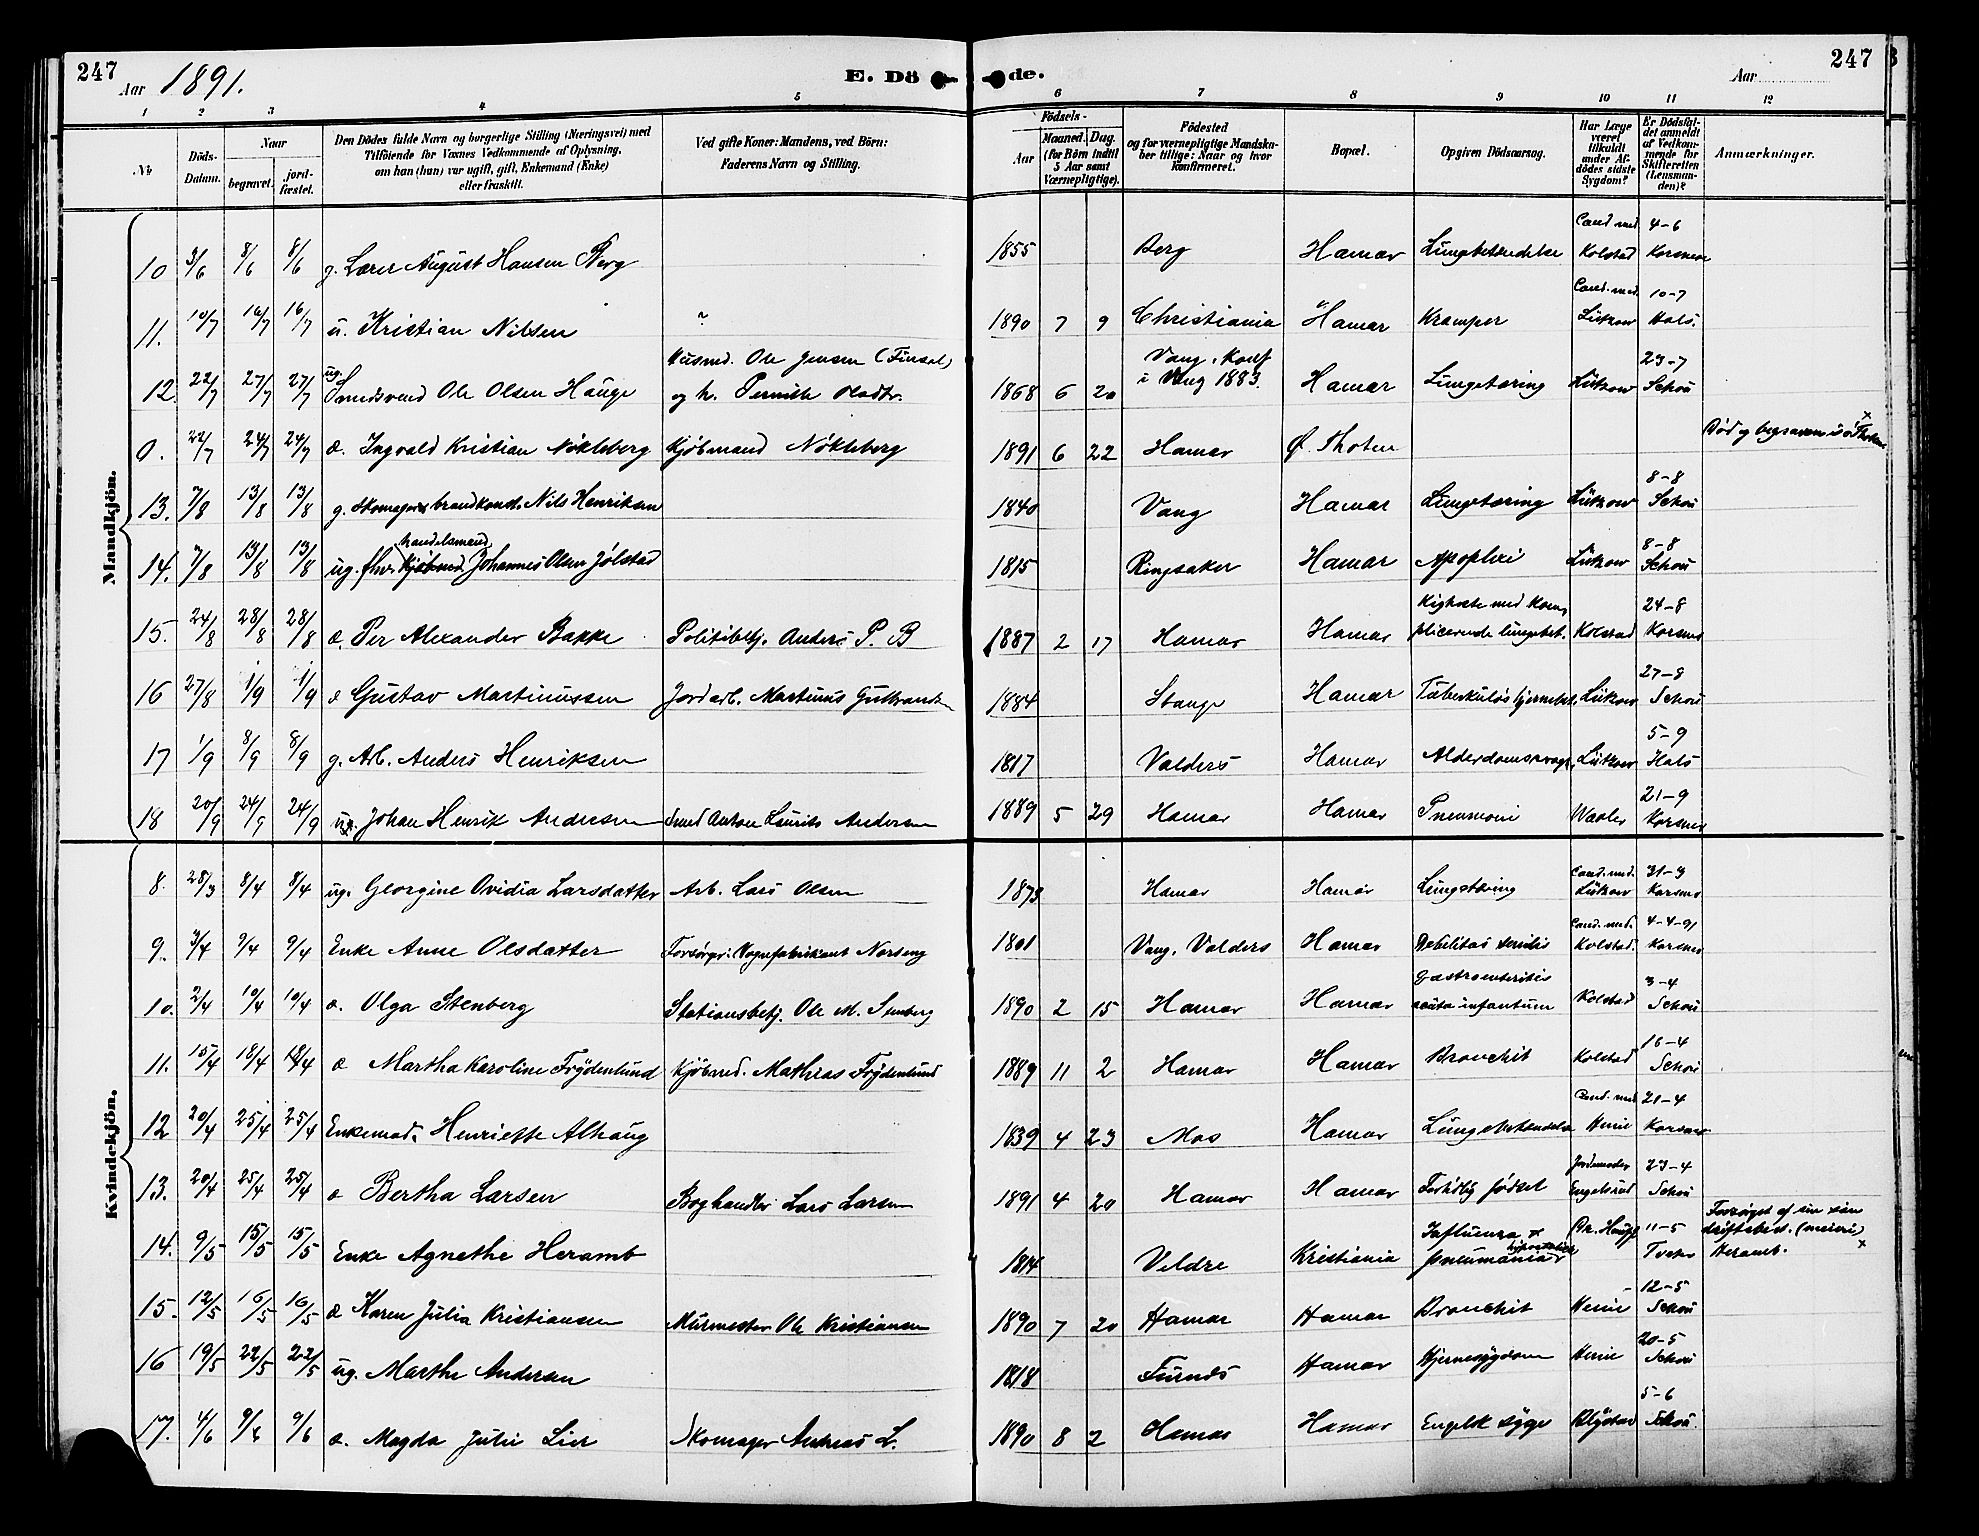 247
Aar 1891.
E. Dö de.
Aar
247
1 2 3 4 5 6 7 8 9 10 11 12
No.
Döds-Datum.
Naar
begravet.
jord-fæstet.
Den Dödes fulde Navn og borgerlige Stilling (Næringsvei) med
Tilföiende for Voxnes Vedkommende af Oplysning,
om han (hun) var ugift, gift, Enkemand (Enke)
eller fraskilt.
Ved gifte Koner: Mandens, ved Börn:
Faderens Navn og Stilling.
Födsels-
Aar
Maaned. Dag.
(for Børn indtil
5 Aar samt
Værnepligtige).
Födested
og for værnepligtige Mandska-
ber tillige: Naar og hvor
Konfirmeret.
Bopæl.
Opgiven Dödsaarsag.
Har Læge
været
tilkaldt
under Af-
dödes sidste
Sygdom?
Er Dödsfal-
det anmeldt
af Vedkom-
mende for
Skifteretten
(Lensman-
den)?
Anmærkninger.
Mandkjön.
10 3/6 8/6 8/6 g. Lærer August Hansen Berg 1855 Berg Hamar Lungebetændelse Cand med Kolstad 4-6 Korsmo
11. 10/7 16/7 16/7 u. Kristian Nilsen ? 1890 7 9 Christiania Hamar Kramper Cand. med. Lützow 10-7 Hals.
12. 22/7 27/7 27/7 ug. Smedsvend Ole Olsen Hauge Husmd. Ole Jensen (Finsal) og h. Pernille Olsdtr. 1868 6 20 Vang, Konf i Vang 1883. Hamar Lungetæring Lützow 23-7 Schou
0. 22/7 24/7 24/7 æ. Ingvald Kristian Nökleberg Kjöbmand Nökleberg 1891 6 22 Hamar Ø. Thoten Död og begraven i Ö Thoten x
13. 7/8 13/8 13/8 g. Skomager brandkonst. Nils Henriksen 1840 Vang Hamar Lungetæring Lützow 8-8 Schou
14. 7/8 13/8 13/8 ug. fhv. Kjöbmd. handelsmand Johannes Olsen Jølstad 1815 Ringsaker Hamar Apoplexi Lützow 8-8 Schou
15. 24/8 28/8 28/8 æ. Per Alexander Bakke Politibetj. Anders P. B 1887 2 17 Hamar Hamar Kighoste med kom plicerende lungebet. Kolstad 24-8 Korsmo
16 27/8 1/9 1/9 æ Gustav Martinussen Jordarb. Martinus Gulbrandsen 1884 Stange Hamar Tuberkuløs hjernebet. Lützow 27-8 Schou
17 1/9 8/9 8/9 g. Arb. Anders Henriksen 1817 Valders Hamar Alderdomssvagh. Lützow 5-9 Hals
18 20/9 24/9 24/9 ug. Johan Henrik Andersen Smed Anton Laurits Andersen 1889 5 29 Hamar Hamar Pneumoni Waaler 21-9 Korsmo
Kvindekjön.
8. 28/3 8/4 8/4 ug. Georgine Ovidia Larsdatter Arb. Lars Olsen 1873 Hamar Hamar Lungetæring Cand. med. Lützow 31-3 Korsmo
9. 3/4 9/4 9/4 Enke Anne Olsdatter Forsörger: Vognfabrikant Norseng 1801 Vang, Valders Hamar Debilitas senilis Cand. med. Kolstad. 4-4-91 Korsmo
10. 2/4 10/4 10/4 æ. Olga Stenberg Stationsbetj. Ole M. Stenberg 1890 2 15 Hamar Hamar Gastroenteritis acuta infantum Kolstad 3-4 Schou
11. 15/4 18/4 18/4 æ Martha Karoline Frydenlund Kjöbmd. Mathias Frydenlund 1889 11 2 Hamar Hamar Bronchit Kolstad 16-4 Schou
12 20/4 25/4 25/4 Enkemad. Henriette Alhaug 1839 4 23 Mos Hamar Lungebetændelse Cand. med Heiie 21-4 Korsmo
13. 20/4 25/4 25/4 æ Bertha Larsen Boghandler Lars Larsen 1891 4 20 Hamar Hamar Fortidlig födsel Jordemoder Engelsrud 23-4 Schou
14. 9/5 15/5 15/5 Enke Agnethe Heramb 1814 Veldre Kristiania Influenza + hypostatisk pneumonia Dr. Hauge 11-5 Forsörget af sin sön driftsbest. (meieri) Heramb. x
15. 12/5 16/5 16/5 æ Karen Julia Kristiansen Murmester Ole Kristiansen 1890 7 20 Hamar Hamar Bronchit Heiie 12-5 Schou
16 19/5 22/5 22/5 ug. Marthe Andersen 1818 Furnes Hamar Hjernesygdom Heiie 20-5 Schou
17. 4/6 9/6 9/6 æ. Magda Julie Lier Skomager Andreas L. 1890 8 2 Hamar Hamar Engelsk syge 5-6 Schou.